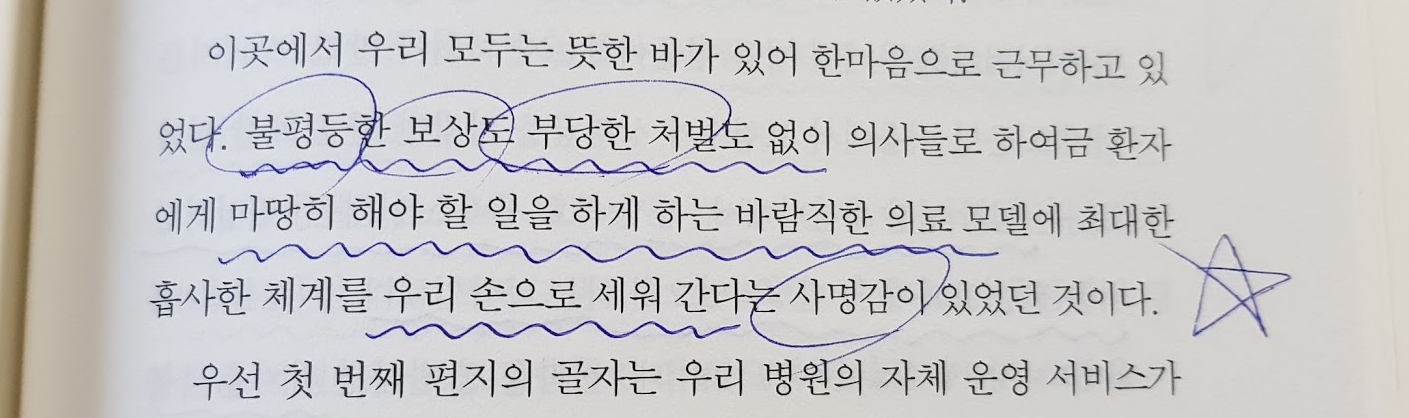 이곳에서 우리 모두는 뜻한 바가 있어 한마음으로 근무하고 있
었다. 불평등한 보상도 부당한 처벌도 없이 의사들로 하여금 환자
에게 마땅히 해야 할 일을 하게 하는 바람직한 의료 모델에 최대한
흡사한 체계를 우리 손으로 세워 간다는 사명감이 있었던 것이다.
우선 첫 번째 편지의 골자는 우리 병원의 자체 운영 서비스가